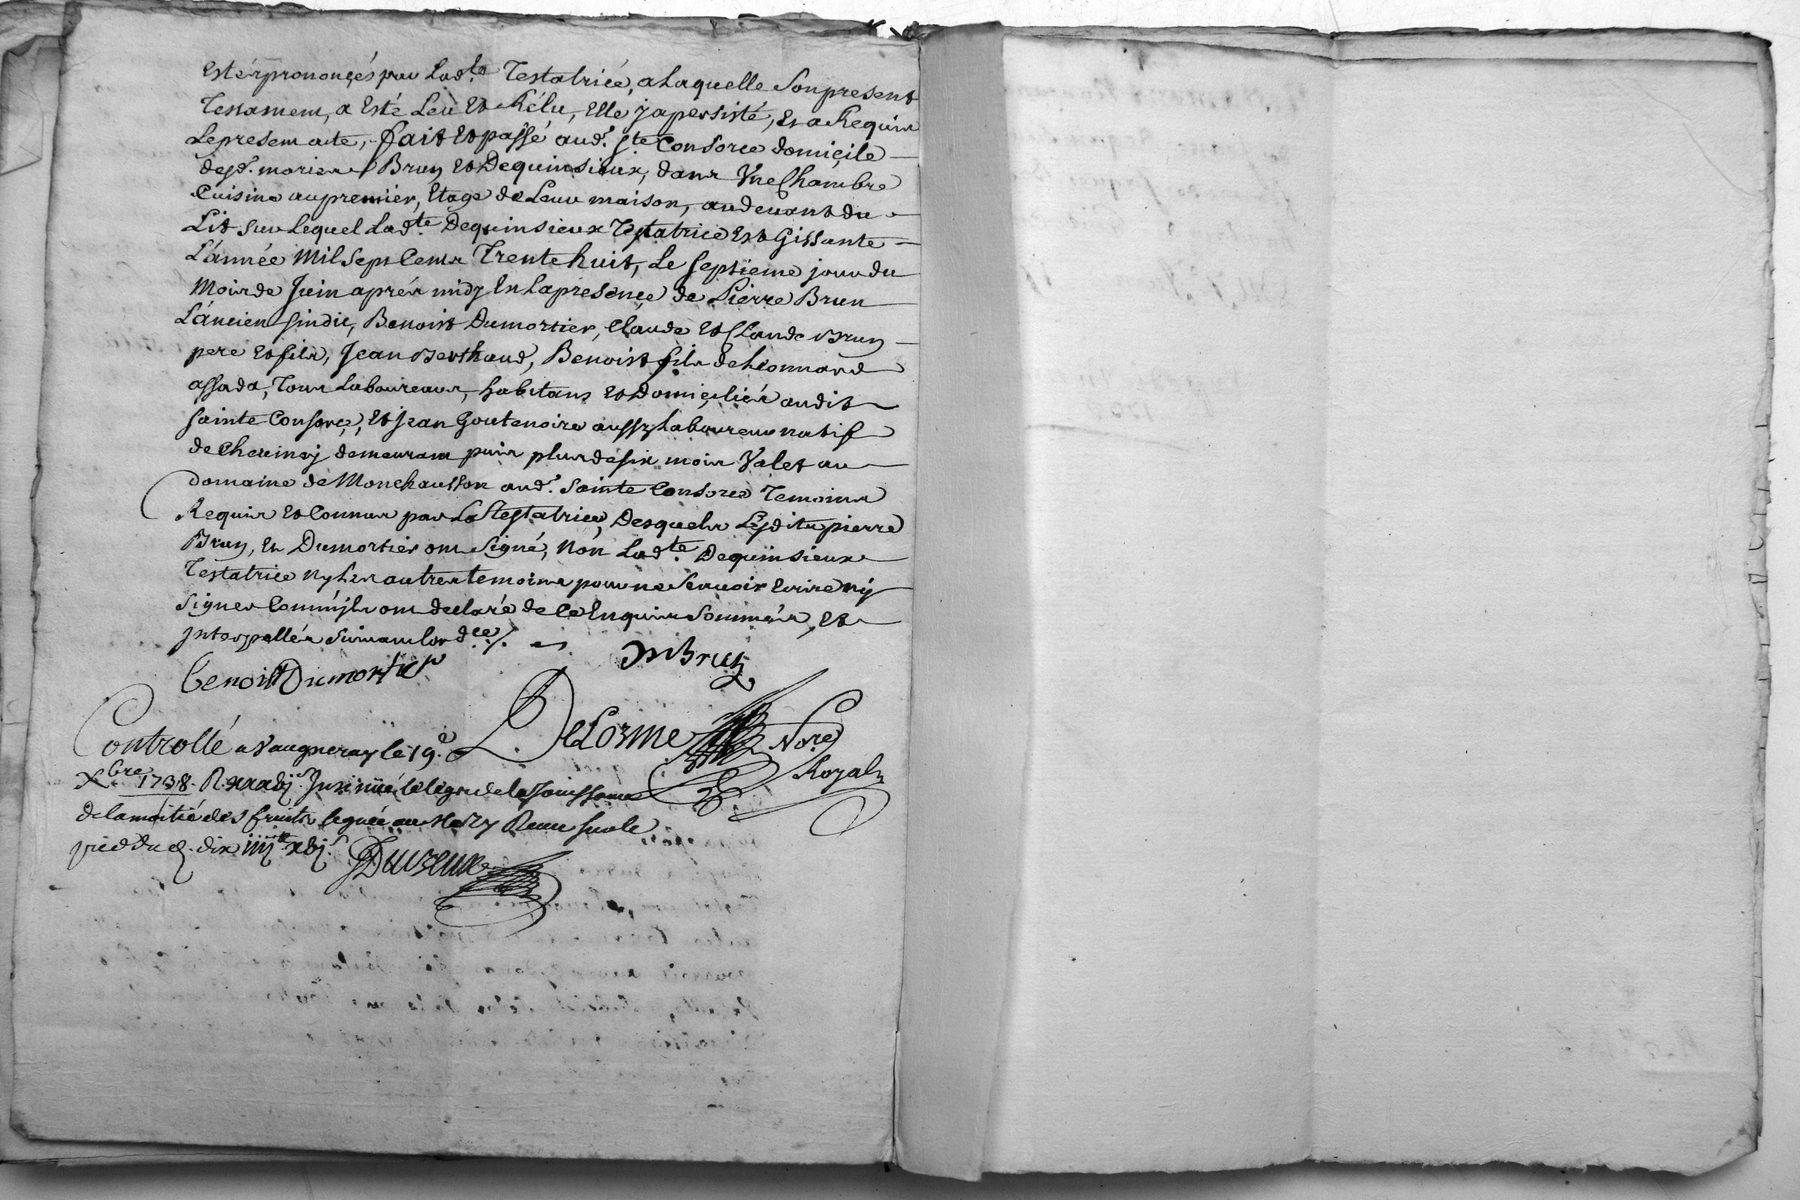 Esté prononcés par Lad.te Testatrice, a Laquelle Son present
Testament, a Esté Leu Et Rélu, Elle y a persisté, Et a Requis
Le present acte, fait Et passé aud.t S.te Consorce domiçile
desd. mariés Brun Et Dequinsieux, dans Vne Chambre
Cuisine au premier, Etage de Leur maison, au deuant du
Lit Sur Lequel Lad.te Dequinsieux Testatrice Est Gissante
L'année Mil Sept Cents Trente huit, Le Septieme jour du
Mois de Juin aprés midy En La presençe de Pierre Brun
L'ancien Sindic, Benoist Dumortier, Claude Et Claude Brun
pere Et fils, Jean Berthaud, Benoist fils de Leonnard
assada, Tous Laboureurs, habitans Et Domiçiliés audit
Sainte Consorçe, Et Jean Goutenoire aussy Laboureur natif
de Cheuinay demeurant puis plus de six mois Valet au
Domaine de Monchausson aud.t Sainte Consorce Temoins
Requis Et Connus par La Testatrice, Desquels Lesdits pierre
Brun, Et Dumortier ont Signé, Non Lad.te Dequinsieux
Testatrice ny Les autres temoins pour ne Scauoir Ecrire ny
Signer Comm'jls ont declaré de Ce Enquis Sommés, Et
Interpellés Suiuant L'ord.ce ./.
benoist Dumortier
Brun
Controllé a Vaugneray le 19.e
Delorme No.re
Royal
Xbre 1738. R. Insinüé le legs de la Joüissance
de la moitié des fruits legués au Mary Reçeu
Duvreux